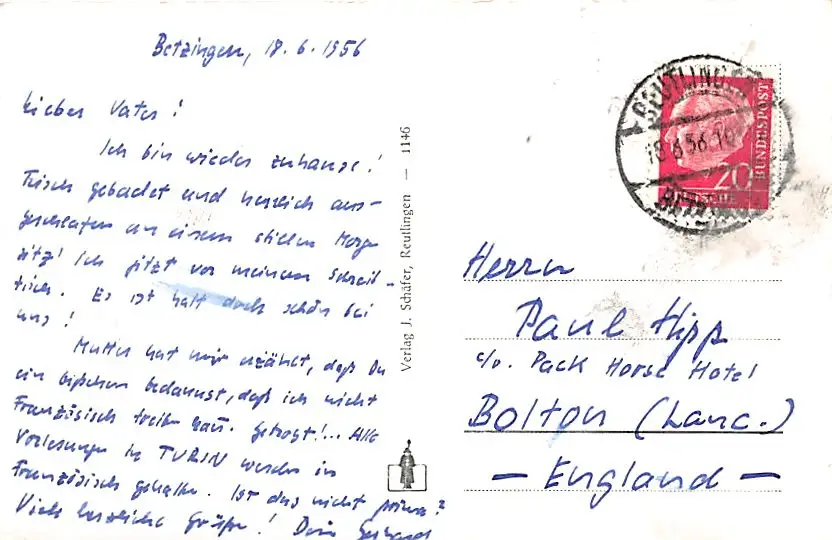 Betzingen, 18.6.1956
Lieber Vater!
Ich bin wieder zuhause!
Frisch gebadet und herzlich aus-
geschlafen an einem stillen Morgen
sitz' ich jetzt vor meinem Schreib-
tisch. Es ist halt doch schön bei
uns!
Mutter hat mir erzählt, daß Du
ein bißchen bedauerst, daß ich nicht
Französisch treiben kann. Getrost!... Alle
Vorlesungen in TURIN werden in
Französisch gehalten. Ist das nicht prima?
Viele herzliche Grüße! Dein Gerhard
Verlag J. Schäfer, Reutlingen — 1146
REUTLINGEN
18.6.56.
BETZINGEN
20
BUNDESPOST
Herrn
Paul Hipp
c/o. Pack Horse Hotel
Bolton (Lanc.)
— England —